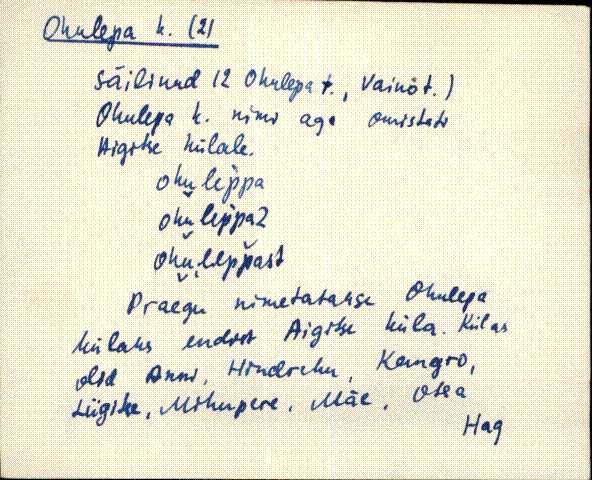 Ohulepa k. (2)
säilinud (2 Ohulepa t., Vainot.)
Ohulepa k. nimi aga omistati
Aigitse külale.
ohu leppa
ohu leppa2
ohu leppast
Praegu nimetatakse Ohulepa
külaks endist Aigitse küla. Külas
olid Anni, Hindreku, Kangro,
Liigitse, Mihupere, Mäe, Otsa
Hag